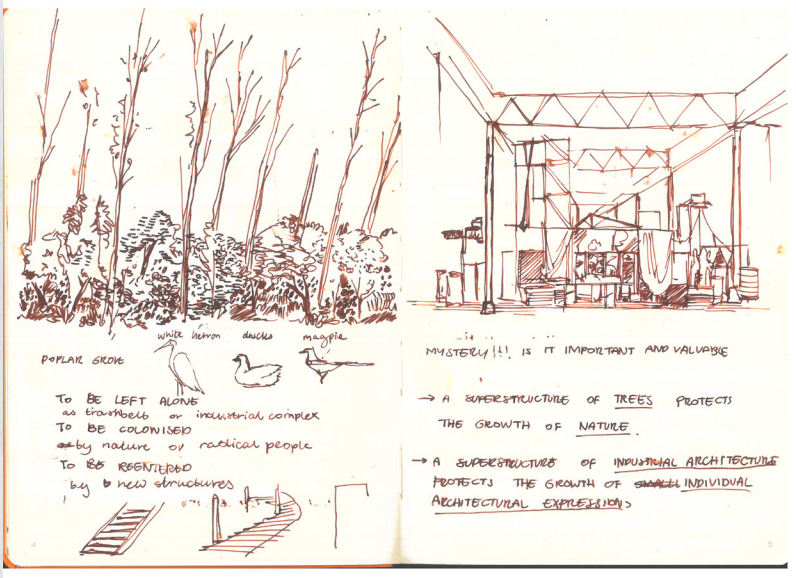 white heron ducks magpie
POPLAR GROVE
TO BE LEFT ALONE
as trashbelt or industrial complex
TO BE COLONISED
by nature or radical people
TO BE REENTERED
by new structures
4
MYSTERY!!! IS IT IMPORTANT AND VALUABLE
→ A SUPERSTRUCTURE OF TREES PROTECTS
THE GROWTH OF NATURE.
→ A SUPERSTRUCTURE OF INDUSTRIAL ARCHITECTURE
PROTECTS THE GROWTH OF SMALL INDIVIDUAL
ARCHITECTURAL EXPRESSIONS
5